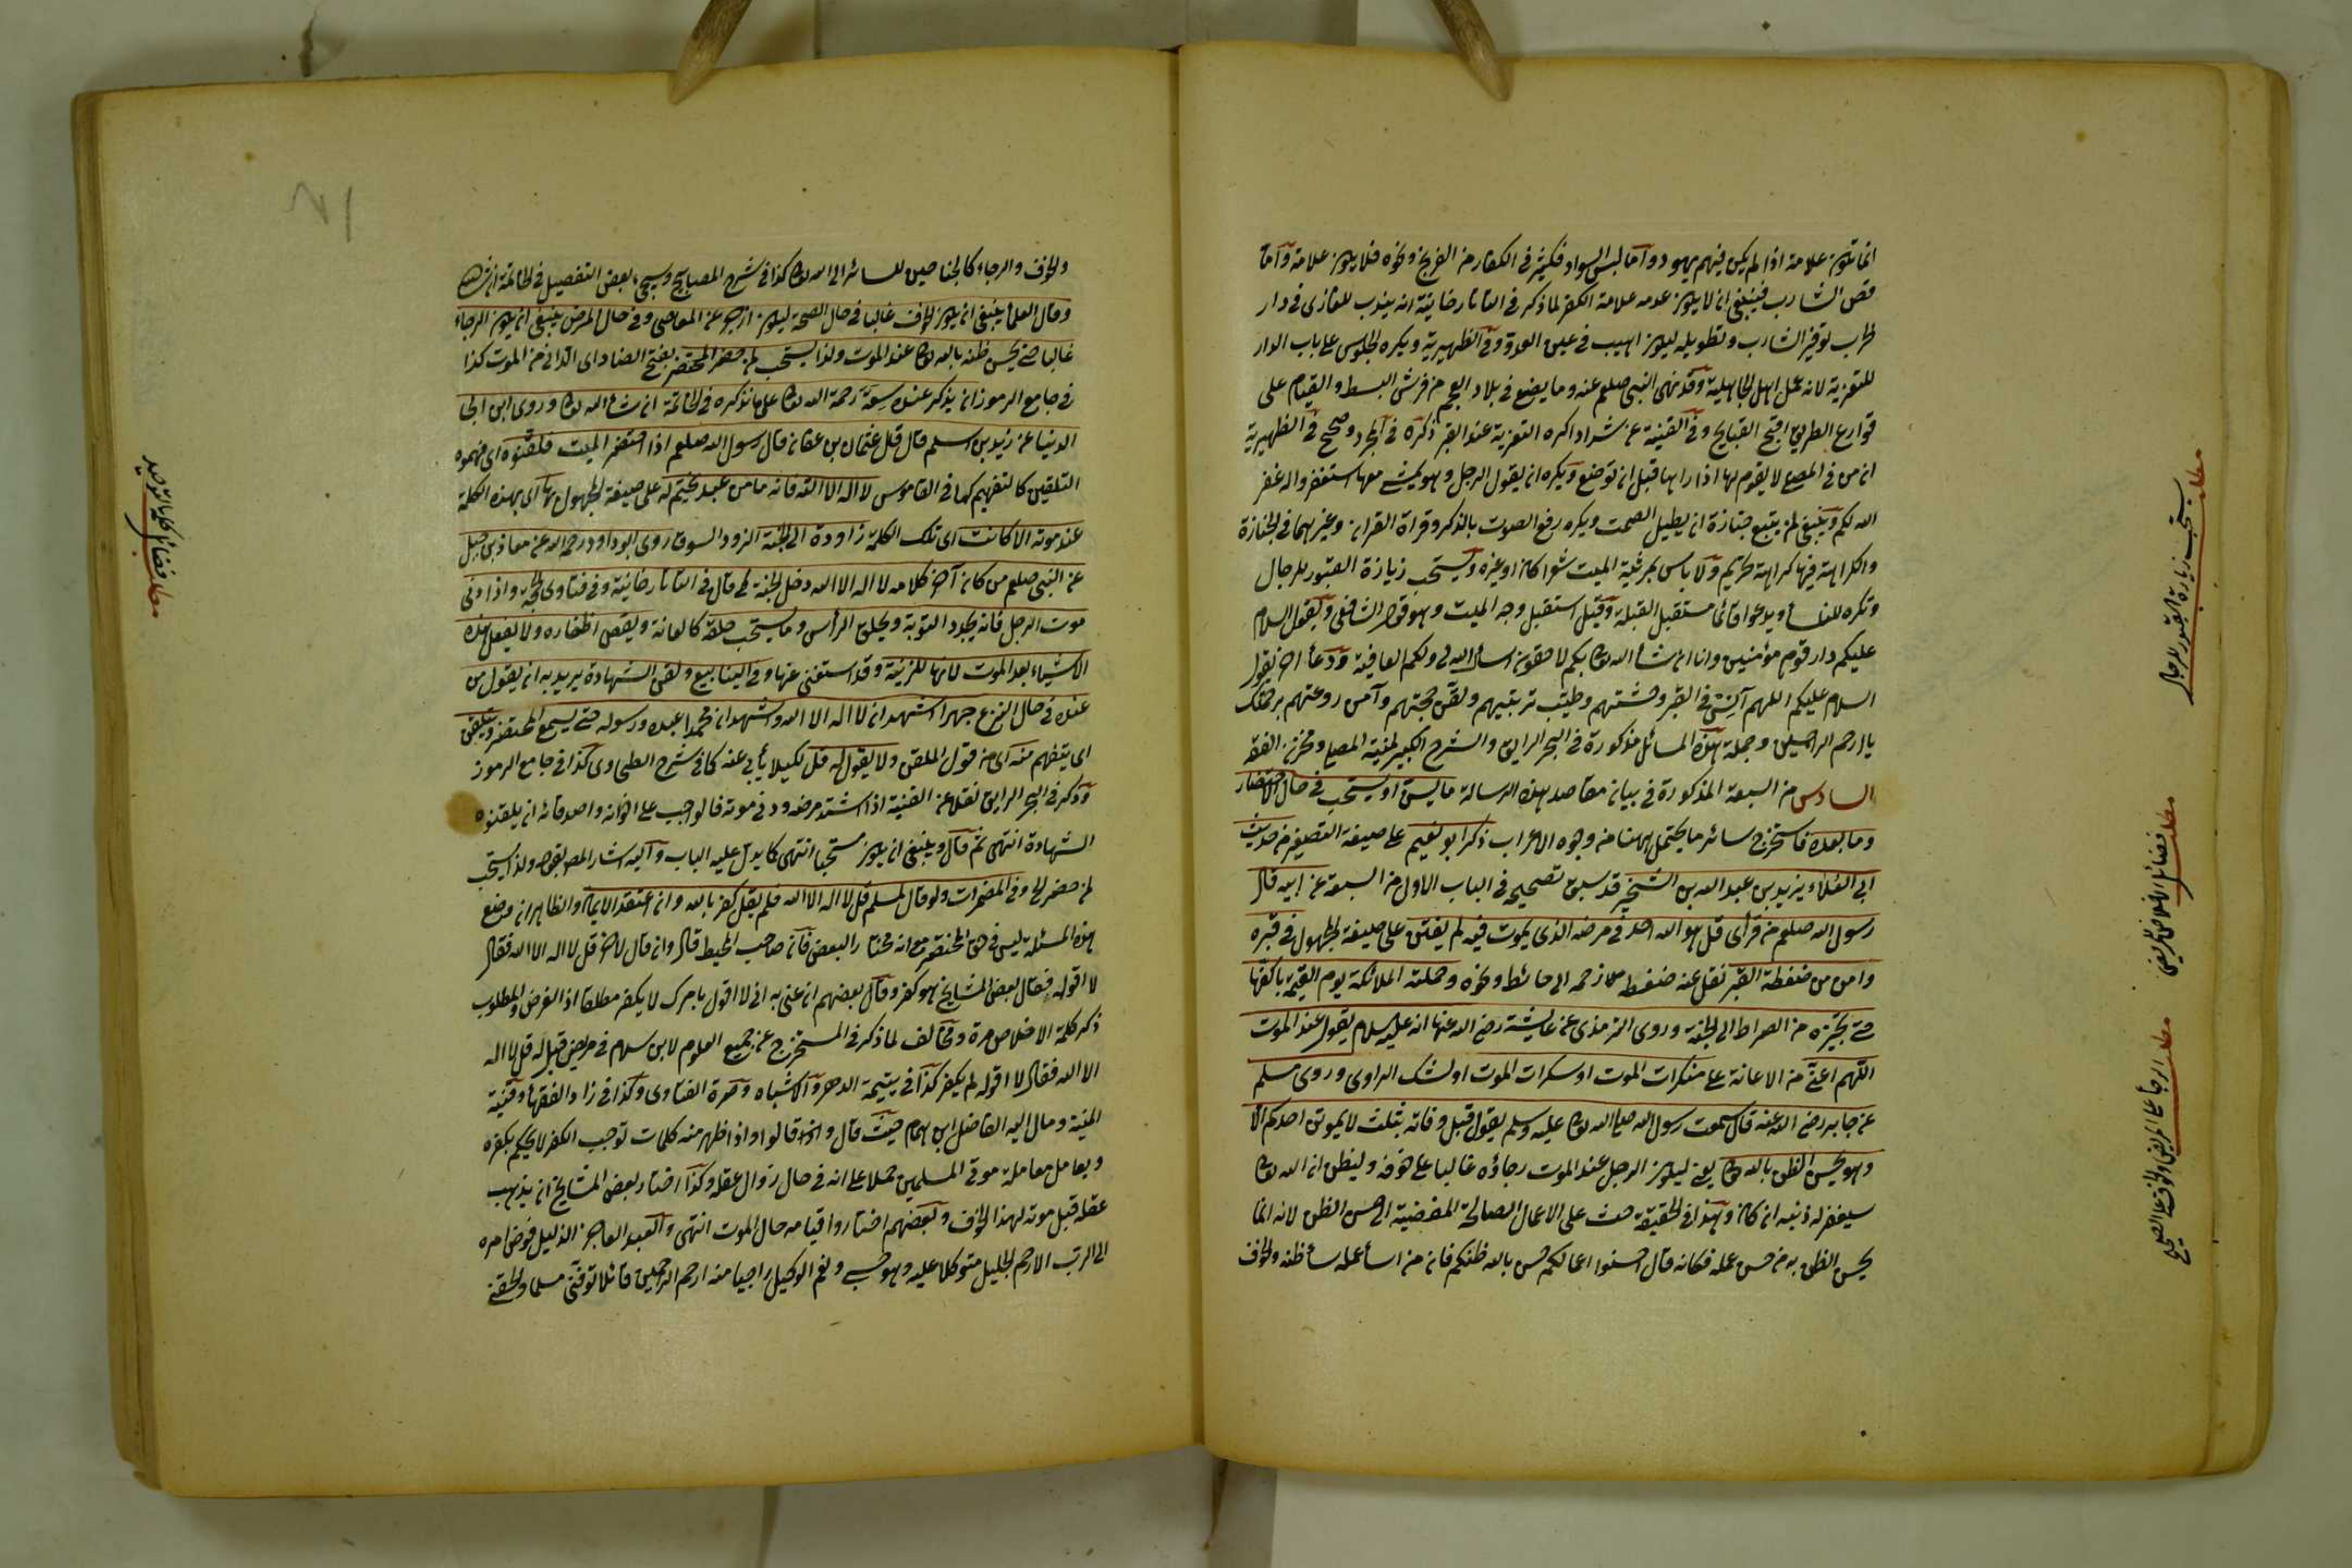 انما تكون علامة اذا لم يكن فيهم يهود واما لبس السواد فكثير في الكفار من الفرنج ونحوه فلا يكون علامة واما
قص الشارب فينبغي ان لا يكون عدمه علامة الكفر لما ذكر في التاتارخانية انه يندب للغازي في دار
الحرب توفير الشارب وتطويله ليكون اهيب في عين العدو وفي الظهيرية ويكره الجلوس على باب الدار
للتعزية لانه عمل اهل الجاهلية وقد نهى النبي صلعم عنه وما يصنع في بلاد العجم من فرش البسط والقيام على
قوارع الطريق اقبح القبايح وفي القنية عن شداد اكره التعزية عند القبر ذكره في المجرد وصحح في الظهيرية
ان من في المصلى لا يقوم لها اذا راها قبل ان توضع ويكره ان يقول الرجل وهو يمشى معها استغفروا له غفر
الله لكم وينبغي لمن يتبع جنازة ان يطيل الصمت ويكره رفع الصوت بالذكر وقراة القران وغيرهما في الجنازة
والكراهة فيها كراهة تحريم ولا باس بمرثية الميت شعرا كان او غيره ويستحب زيارة القبور للرجال
وتكره للنساء ويدعوا قائما مستقبل القبلة وقيل استقبل وجه الميت وهو قول الشافعي ويقول السلام
عليكم دار قوم مؤمنين وانا ان شاء الله تعالى بكم لاحقون اسأل الله لي ولكم العافية ودعاء اخر يقول
السلام عليكم اللهم آنس في القبر وحشتهم وطيب تربتهم ولقن حجتهم وآمن روعتهم برحمتك
يا ارحم الراحمين وجملة هذه المسائل مذكورة في البحر الرايق والشرح الكبير لمنية المصلى ومخزن الفقه
السادس من السبعة المذكورة في بيان مقاصد هذه الرسالة ما يسن او يستحب في حال الاحتضار
وما بعده فاستخرج سائر ما يحتمل ههنا من وجوه الاعراب ذكر ابو نعيم على صيغة التصغير من حديث
ابي العلاء يزيد بن عبد الله بن الشخير قد سبق تصحيحه في الباب الاول من السبعة عن ابيه قال
رسول الله صلعم من قرأ قل هو الله احد في مرضه الذي يموت فيه لم يفتن على صيغة المجهول في قبره
وامن من ضغطة القبر نقل عنه ضغطه زحمه الى حائط ونحوه وحملته الملائكة يوم القيمة باكفها
حتى تجيزه من الصراط الى الجنة وروى الترمذي عن عايشة رضي الله عنها انه عليه السلام يقول عند الموت
اللهم اعني من الاعانة على منكرات الموت او سكرات الموت اولشك الراوي وروى مسلم
عن جابر رضي الله عنه قال سمعت رسول الله صلى الله تعالى عليه وسلم يقول قبل وفاته بثلث لا يموتن احدكم الا
وهو يحسن الظن بالله تعالى يعني ليكون الرجل عند الموت رجاؤه غالبا على خوفه وليظن ان الله تعالى
سيغفر له ذنبه ان كان وهذا في الحقيقة حث على الاعمال الصالحة المفضية الى حسن الظن لانه انما
يحسن الظن به من حسن عمله فكانه قال احسنوا اعمالكم يحسن بالله ظنكم فان من اساء عمله ساء ظنه والخوف
مطلب يستحب زيارة القبور للرجال
مطلب فضائل الاخلاص للمريض
مطلب الرجاء على المريض والخوف على الصحيح
والخوف والرجاء كالجناحين للسائر الى الله تعالى كذا في شرح المصابيح وسيجيء بعض التفصيل في الخاتمة
وقال العلماء ينبغي ان يكون الخوف غالبا في حال الصحة ليكون ازجر عن المعاصي وفي حال المرض ينبغي ان يكون الرجاء
غالبا حتى يحسن ظنه بالله تعالى عند الموت ولذا يستحب لمن حضر المحتضر بفتح الضاد اى الداني من الموت كذا
في جامع الرموز ان يذكر عنده سعة رحمة الله تعالى على ما نذكره في الخاتمة ان شاء الله تعالى وروى ابن ابي
الدنيا عن زيد بن اسلم قال قال عثمان بن عفان قال رسول الله صلعم اذا احتضر الميت فلقنوه اى فهموه
التلقين كالتفهيم كما في القاموس لا اله الا الله فانه ما من عبد يختم له على صيغة المجهول بها اى بهذه الكلمة
عند موته الا كانت اى تلك الكلمة زاوده الى الجنة الزود السوق روى ابو داود رحمه الله عن معاذ بن جبل
عن النبي صلعم من كان آخر كلامه لا اله الا الله دخل الجنة قال في التاتارخانية وفي فتاوى الحجة واذا دنى
موت الرجل فانه يجدد التوبة ويحلق الرأس وما يستحب حلقه كالعانة ويقص اظفاره ولا يفعل هذه
الاشياء بعد الموت لانها للزينة وقد استغنى عنها وفي الينابيع ولقن الشهادة يريد به ان يقول من
عنده في حال النزع جهرا اشهد ان لا اله الا الله واشهد ان محمدا عبده ورسوله حتى يسمع المحتضر ويتلقن
اى يتفهم منه اى من قول الملقن ولا يقول له قل لكيلا يأبى عنه كما في شرح الطحاوى كذا في جامع الرموز
وذكر في البحر الرايق نقلا عن القنية اذا اشتد مرضه ودنى موته فالواجب على اخوانه واصدقائه ان يلقنوه
الشهادة انتهى ثم قال وينبغي ان يكون مستحبا انتهى كما يدل عليه الباب واليه اشار المص بقوله ولذا يستحب
لمن حضر الخ وفي المضمرات ولو قال لمسلم قل لا اله الا الله فلم يقل كفر بالله وان اعتقد الايمان والظاهر ان موضع
هذه المسئلة ليس في حق المحتضر مع انه مختار البعض فان صاحب المحيط قال وان قال لاخر قل لا اله الا الله فقال
لا اقول فقال بعض المشايخ هو كفر وقال بعضهم ان عنى به انى لا اقول بامرك لا يكفر مطلقا اذ الغرض والمطلوب
ذكر كلمة الاخلاص مرة ومخالف لما ذكر في المستخرج عن جميع العلوم لابن سلام في مريض قيل له قل لا اله
الا الله فقال لا اقوله لم يكفر كذا في يتيمة الدهر والاشباه وصرة الفتاوى وكذا في زاد الفقهاء وقنية
المنية ومال اليه الفاضل ابن همام حيث قال وانهم قالوا واذا ظهر منه كلمات توجب الكفر لا يحكم بكفره
ويعامل معاملة موتى المسلمين حملا على انه في حال زوال عقله وكذا اختار بعض المشايخ ان يذهب
عقله قبل موته لهذا الخوف وبعضهم اختاروا قيامه حال الموت انتهى والعبد العاجز الذليل فوض امره
الى الرب الارحم الجليل متوكلا عليه وهو حسبي ونعم الوكيل راجيا منه ارحم الراحمين قائلا توفني مسلما والحقني
مطلب فضائل كلمة التوحيد